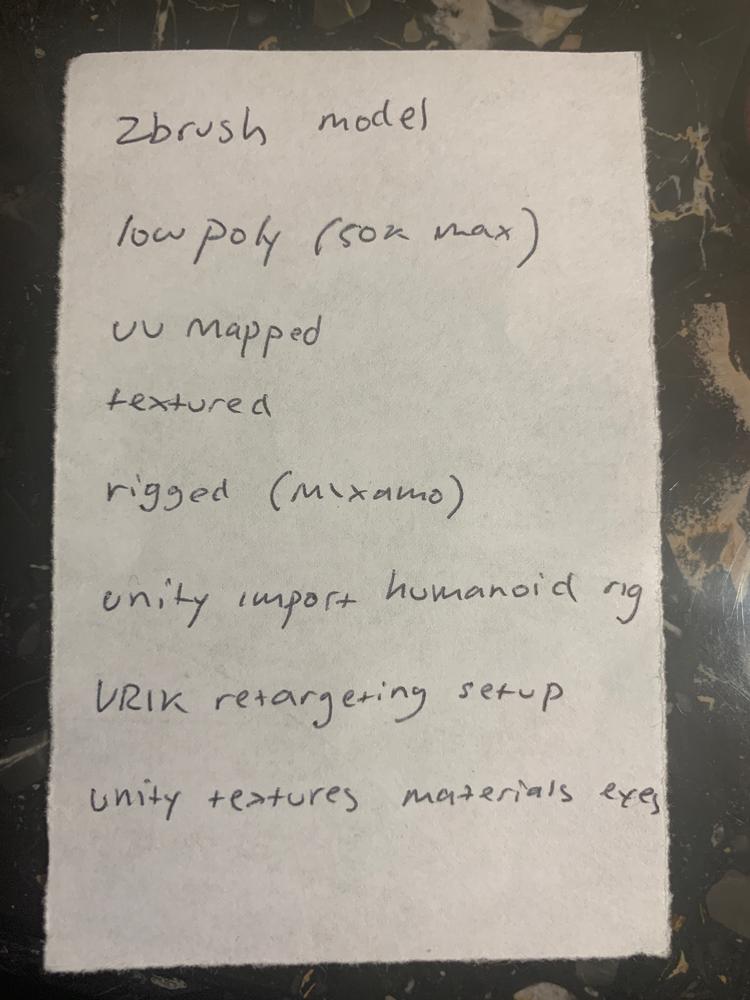 Zbrush model
low poly (50k max)
UV mapped
textured
rigged (mixamo)
unity import humanoid rig
VRIK retargeting setup
unity textures materials eyes